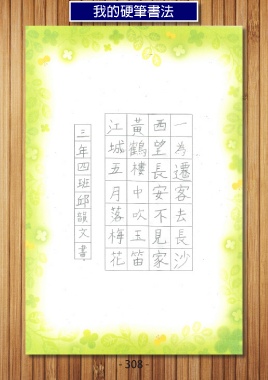 我的硬筆書法
一為遷客去長沙
西望長安不見家
黃鶴樓中吹玉笛
江城五月落梅花
三年四班邱韻文書
- 308 -